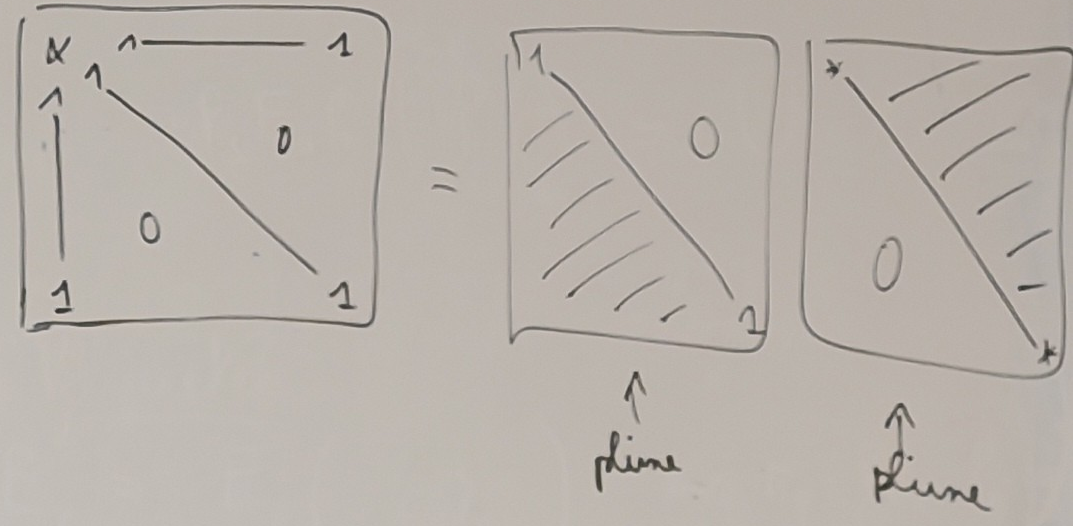 α 1 — 1
1
1
0
0
1 1
=
1
0
1
*
0
*
↑
pleine
↑
pleine